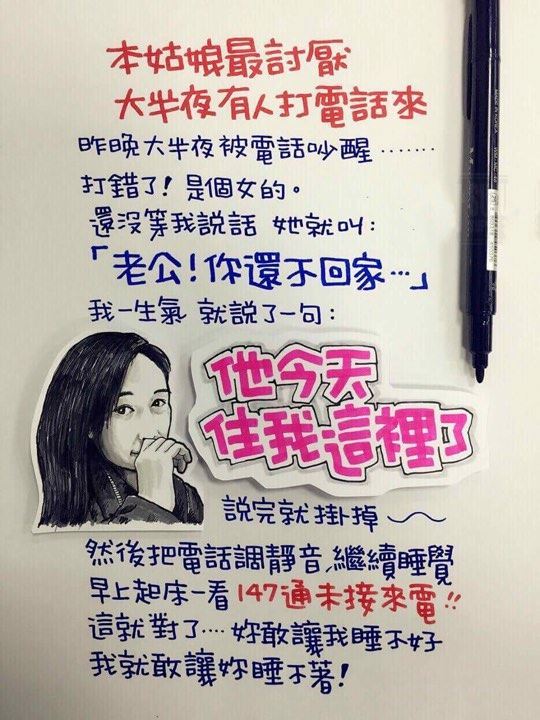 本姑娘最討厭
大半夜有人打電話來
昨晚大半夜被電話吵醒⋯⋯⋯
打錯了!是個女的。
還沒等我說話 她就叫:
「老公!你還不回家⋯」
我一生氣 就說了一句:
他今天
住我這裡了
說完就掛掉~
然後把電話調靜音、繼續睡覺
早上起床一看147通未接來電!!
這就對了⋯⋯妳敢讓我睡不好
我就敢讓妳睡不著!